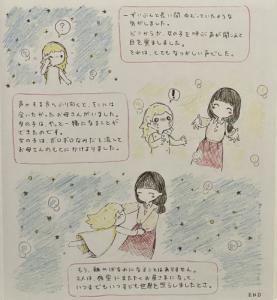 ？
ずいぶんと長い間 ねむっていたような
気がしました。
どこからか、女の子を呼ぶ声が聞こえて
目を覚ましました。
それは、とてもなつかしい声でした。
声のする方へふり向くと、そこには
会いたかったお母さんがいました。
女の子は、やっと一緒になることが
できたのです。
女の子は、ポロポロなみだを流して
お母さんのもとにかけよりました。
！
もう、離ればなれになることはありません。
2人は、夜空にまたたくお星さまになって、
いつまでもいつまでも世界を照らしましたとさ。
END